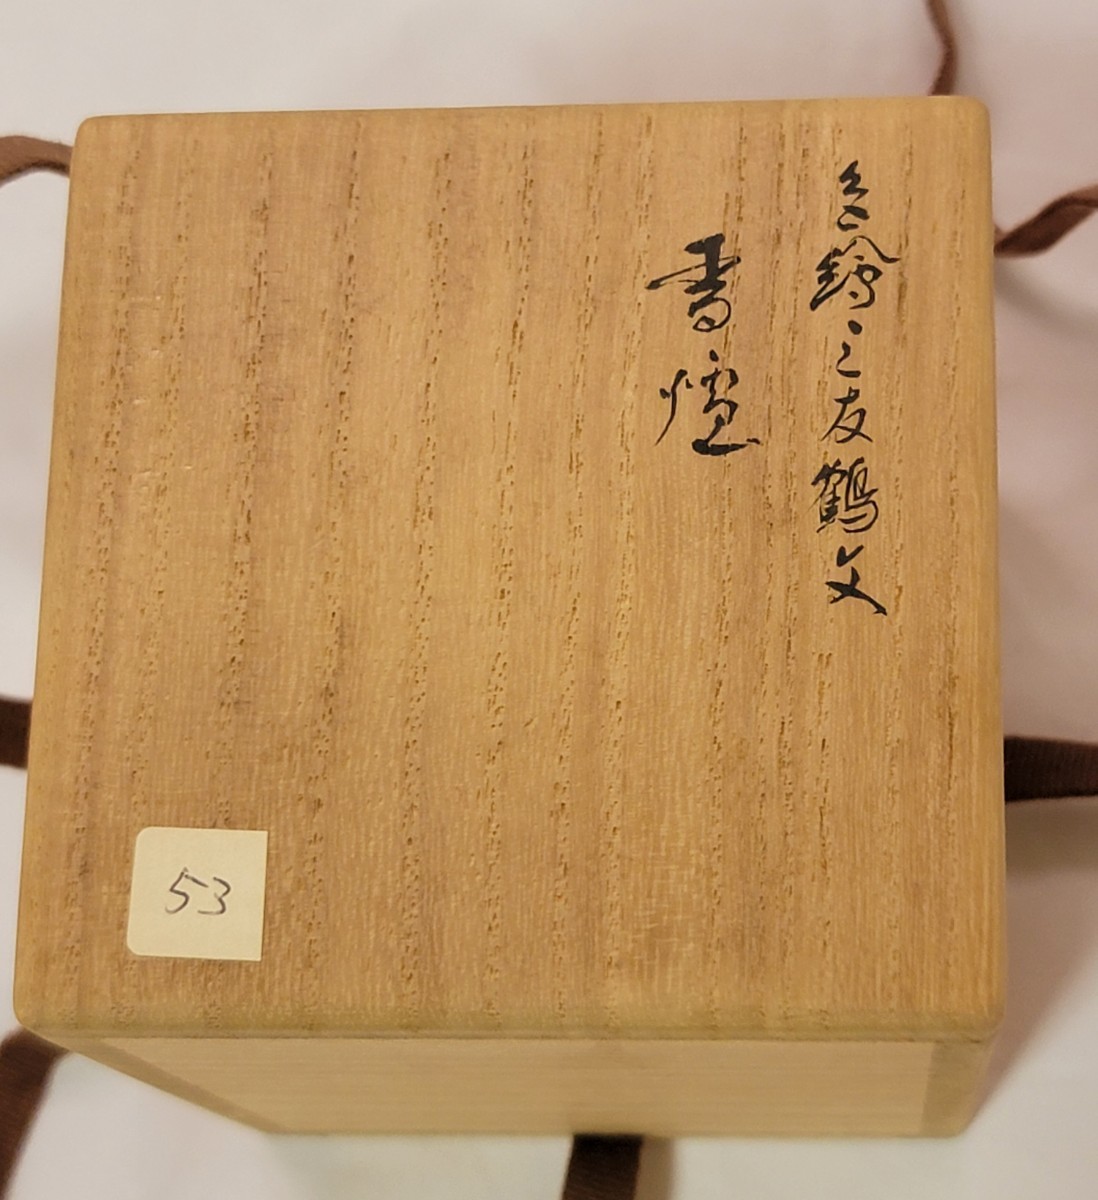 色繪三友鶴文
香爐
53